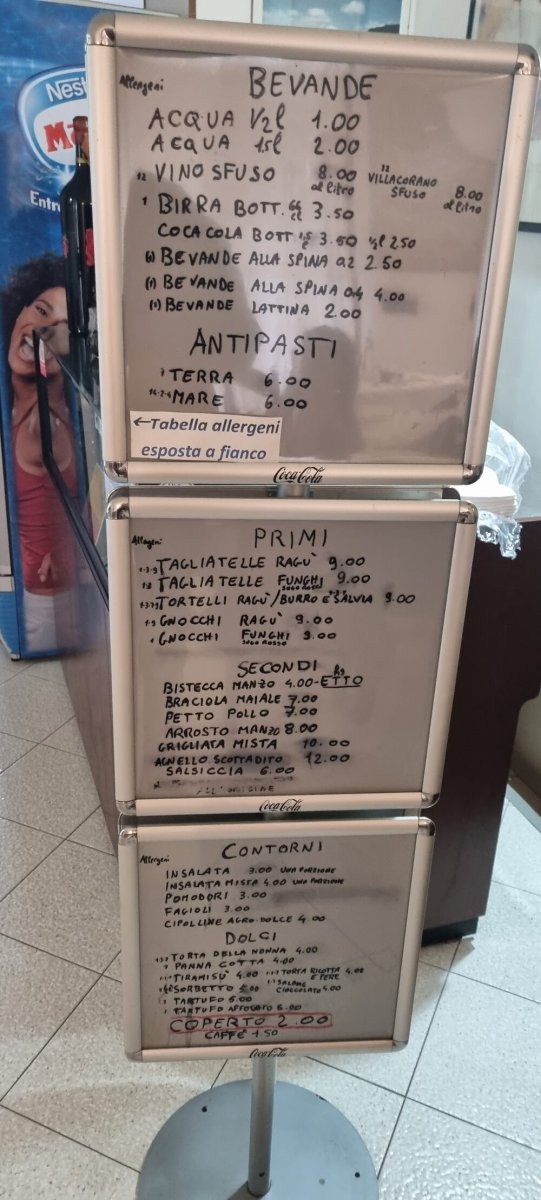 Nest
Entr
Allergeni
BEVANDE
ACQUA 1/2 l 1.00
ACQUA 1.5 l 2.00
12 VINO SFUSO 8.00 al litro
12 VILLACORANO SFUSO 8.00 al litro
1 BIRRA BOTT. 66 cl 3.50
COCA COLA BOTT 1,5 3.50 1/2 l 2.50
BEVANDE ALLA SPINA 0.2 2.50
BEVANDE ALLA SPINA 0.4 4.00
BEVANDE LATTINA 2.00
ANTIPASTI
7 TERRA 6.00
MARE 6.00
←Tabella allergeni
esposta a fianco
Coca-Cola
Allergeni
PRIMI
1-3-9 TAGLIATELLE RAGU' 9.00
1-3 TAGLIATELLE FUNGHI 9.00
SUGO ROSSO
TORTELLI RAGU'/BURRO E SALVIA 9.00
1-9 GNOCCHI RAGU' 9.00
1 GNOCCHI FUNGHI 9.00
SUGO ROSSO
SECONDI
BISTECCA MANZO 4.00-ETTO
BRACIOLA MAIALE 7.00
PETTO POLLO 7.00
ARROSTO MANZO 8.00
GRIGLIATA MISTA 10.00
AGNELLO SCOTTADITO 12.00
SALSICCIA 6.00
ALL'ORIGINE
Coca-Cola
Allergeni
CONTORNI
INSALATA 3.00 UNA PORZIONE
INSALATA MISTA 4.00 UNA PORZIONE
POMODORI 3.00
FAGIOLI 3.00
CIPOLLINE AGRO DOLCE 4.00
DOLCI
TORTA DELLA NONNA 4.00
7 PANNA COTTA 4.00
TIRAMISU' 4.00
TORTA RICOTTA E PERE 4.00
SORBETTO 5.00
SALAME CIOCCOLATO 4.00
TARTUFO 5.00
TARTUFO AFFOGATO 6.00
COPERTO 2.00
CAFFE' 1.50
Coca-Cola